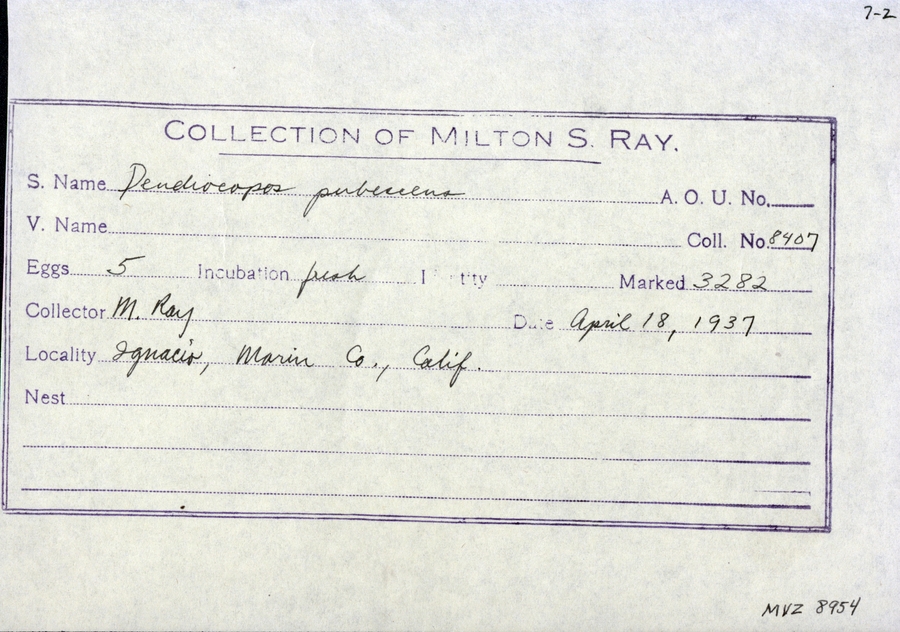 7-2
COLLECTION OF MILTON S. RAY.
S. Name Dendrocopos pubescens A. O. U. No.
V. Name Coll. No. 8407
Eggs 5 Incubation fresh I tity Marked 3282
Collector M. Ray Date April 18, 1937
Locality Ignacio, Marin Co., Calif.
Nest
MVZ 8954